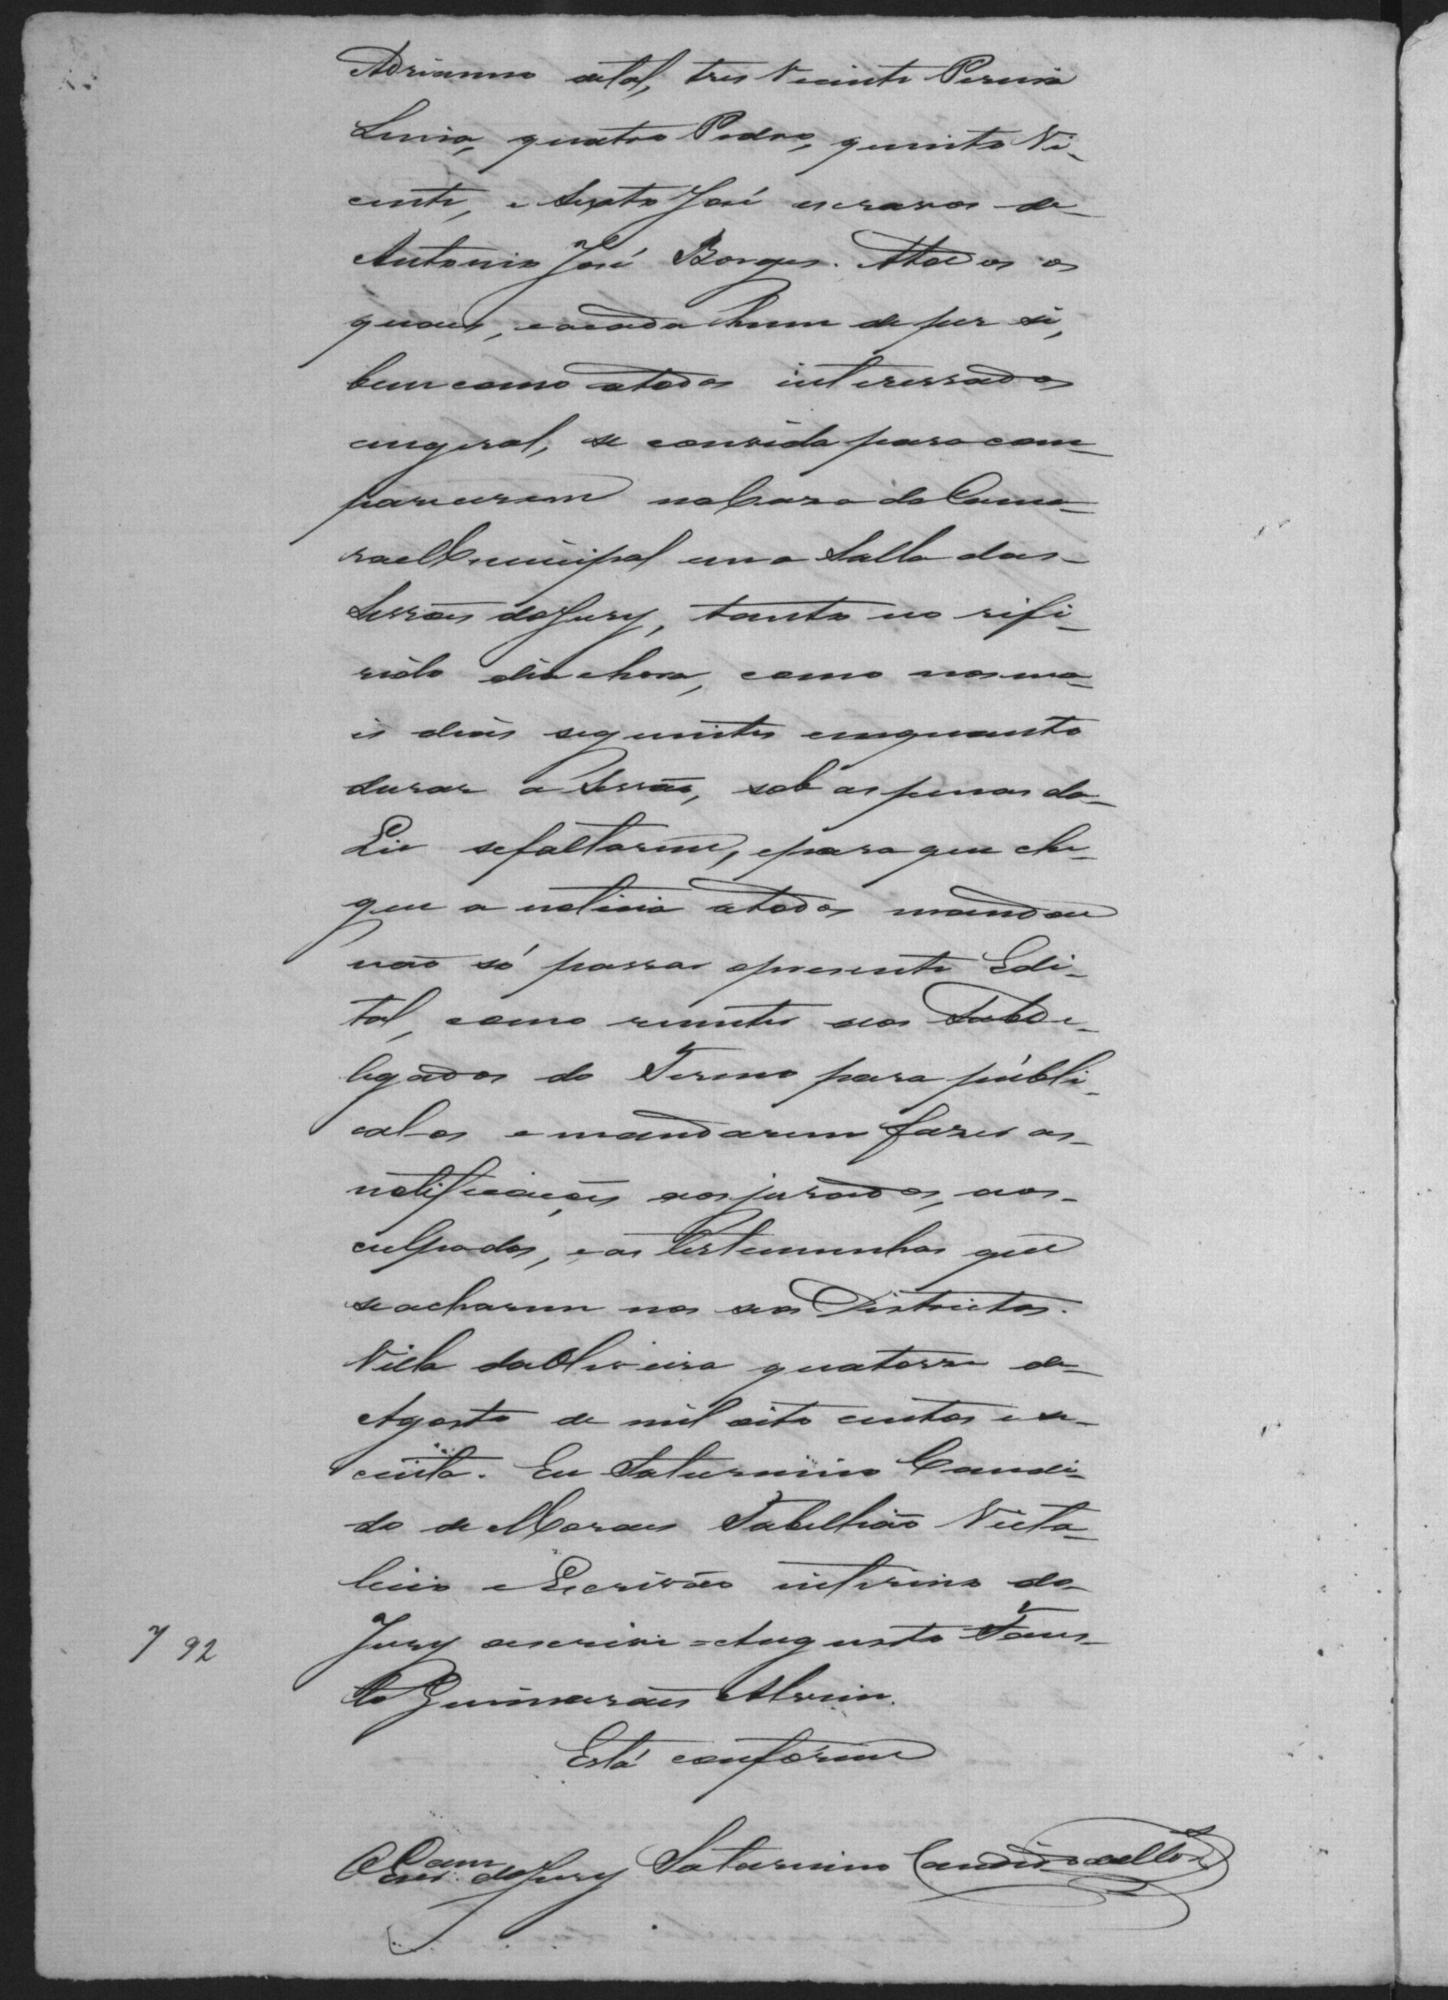 Adrianno de tal, tres Vicente Pereira
Lima, quatro Pedro, quinto Vi-
cente, e Sexto José escravos de
Antonio José Borges. Atodos os
quaes, e acada hum de per si,
bem como atodos interessados
emgeral, se convida para com-
parecerem na Casa da Cama-
ra Municipal em a Salla das
Sessões do Jury, tanto no refe-
rido dia e hora, como nos ma-
is dias seguintes emquanto
durar a Sessão, sob as penas da
Lei se faltarem, e para que che-
gue a noticia atodos mandou
não só passar o presente Edi-
tal, como remetter aos Subde-
legados do Termo para públi-
cal os e mandarem fazer as
notificações aos jurados, aos
culpados, e as testemunhas que
se acharem nos seos Districtos.
Villa da Oliveira quatorze de
Agosto de mil oito centos e se-
centa. Eu Saturnino Candi-
do de Moraes Tabellião Vita-
licio e Escrivão interino do
Jury o escrevi = Augusto Faus-
to Guimarães Alvim.
7 92
Está confórme
O Escr. do Jury Saturnino Candido